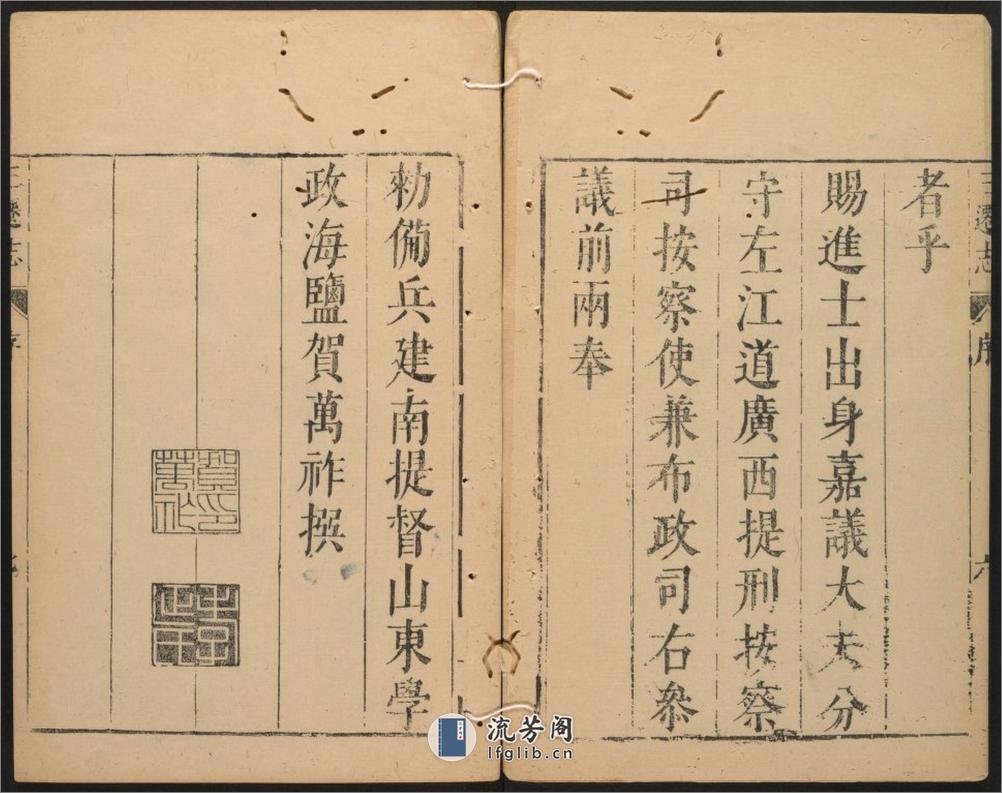 三遷志
序
六
者乎
賜進士出身嘉議大夫分
守左江道廣西提刑按察
司按察使兼布政司右叅
議前兩奉
勑備兵建南提督山東學
政海鹽賀萬祚撰
賀萬祚印
三遷志
序
流芳阁
lfglib.cn